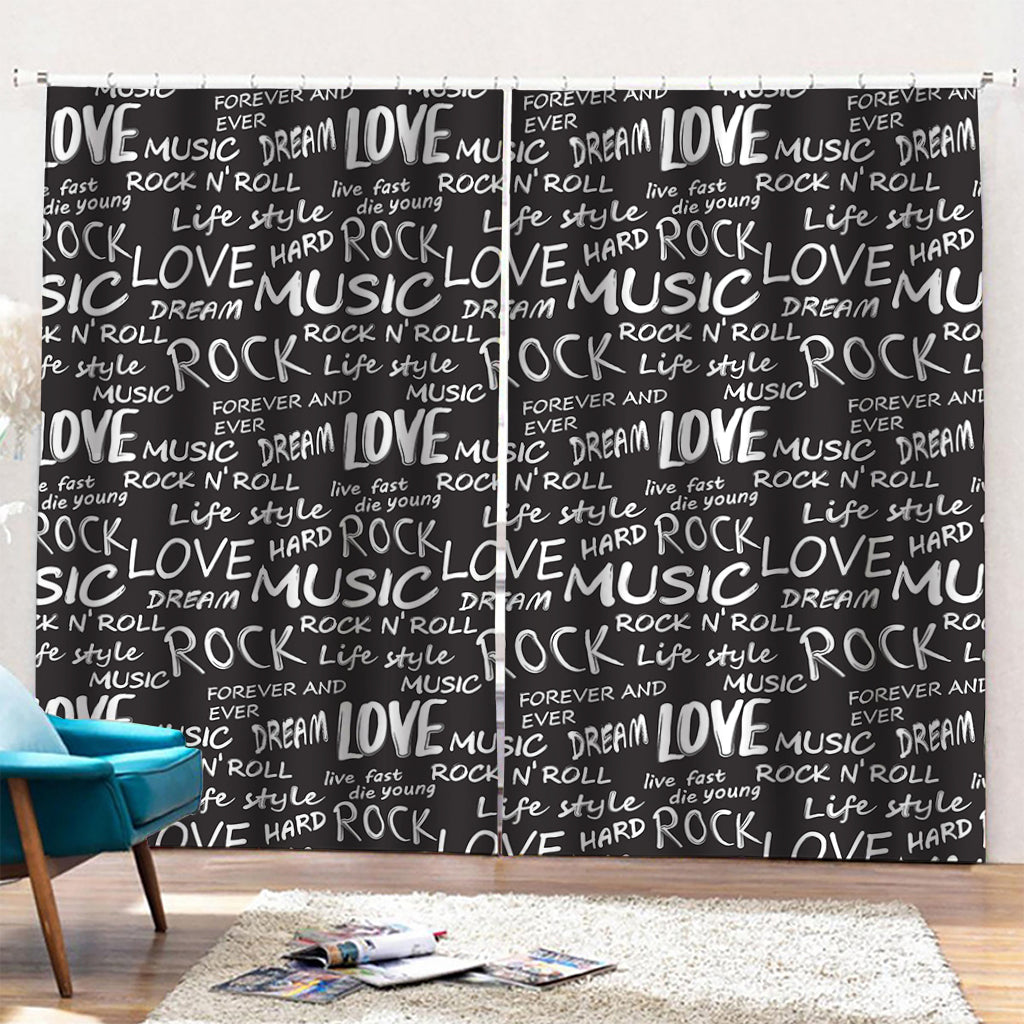 MUSIC MUSIC MUSIC MUSIC
FOREVER AND FOREVER AND FOREVER AN
LOVE EVER LOVE EVER LOVE EVER
MUSIC DREAM MUSIC DREAM MUSIC DREAM
e fast ROCK N'ROLL live fast ROCK N'ROLL live fast ROCK N'ROLL li
die young die young die young
Life style Life style Life style
ROCK LOVE HARD ROCK LOVE HARD ROCK LOVE HARD
SIC DREAM MUSIC DREAM MUSIC DREAM MU
CK N'ROLL ROCK N'ROLL ROCK N'ROLL RO
fe style ROCK Life style ROCK Life style ROCK L
MUSIC MUSIC MUSIC
FOREVER AND FOREVER AND FOREVER AND
LOVE EVER LOVE EVER LOVE EVER
MUSIC DREAM MUSIC DREAM MUSIC DREAM
e fast ROCK N'ROLL live fast ROCK N'ROLL live fast ROCK N'ROLL li
die young die young die young
Life style Life style Life style
ROCK LOVE HARD ROCK LOVE HARD ROCK LOVE HARD
SIC DREAM MUSIC DREAM MUSIC DREAM MU
CK N'ROLL ROCK N'ROLL ROCK N'ROLL RO
fe style ROCK Life style ROCK Life style ROCK L
MUSIC MUSIC MUSIC
FOREVER AND FOREVER AND FOREVER AND
LOVE EVER LOVE EVER LOVE EVER
USIC DREAM MUSIC DREAM MUSIC DREAM
N'ROLL live fast ROCK N'ROLL live fast ROCK N'ROLL li
die young die young
fe style Life style Life style
OVE HARD ROCK LOVE HARD ROCK LOVE HARD